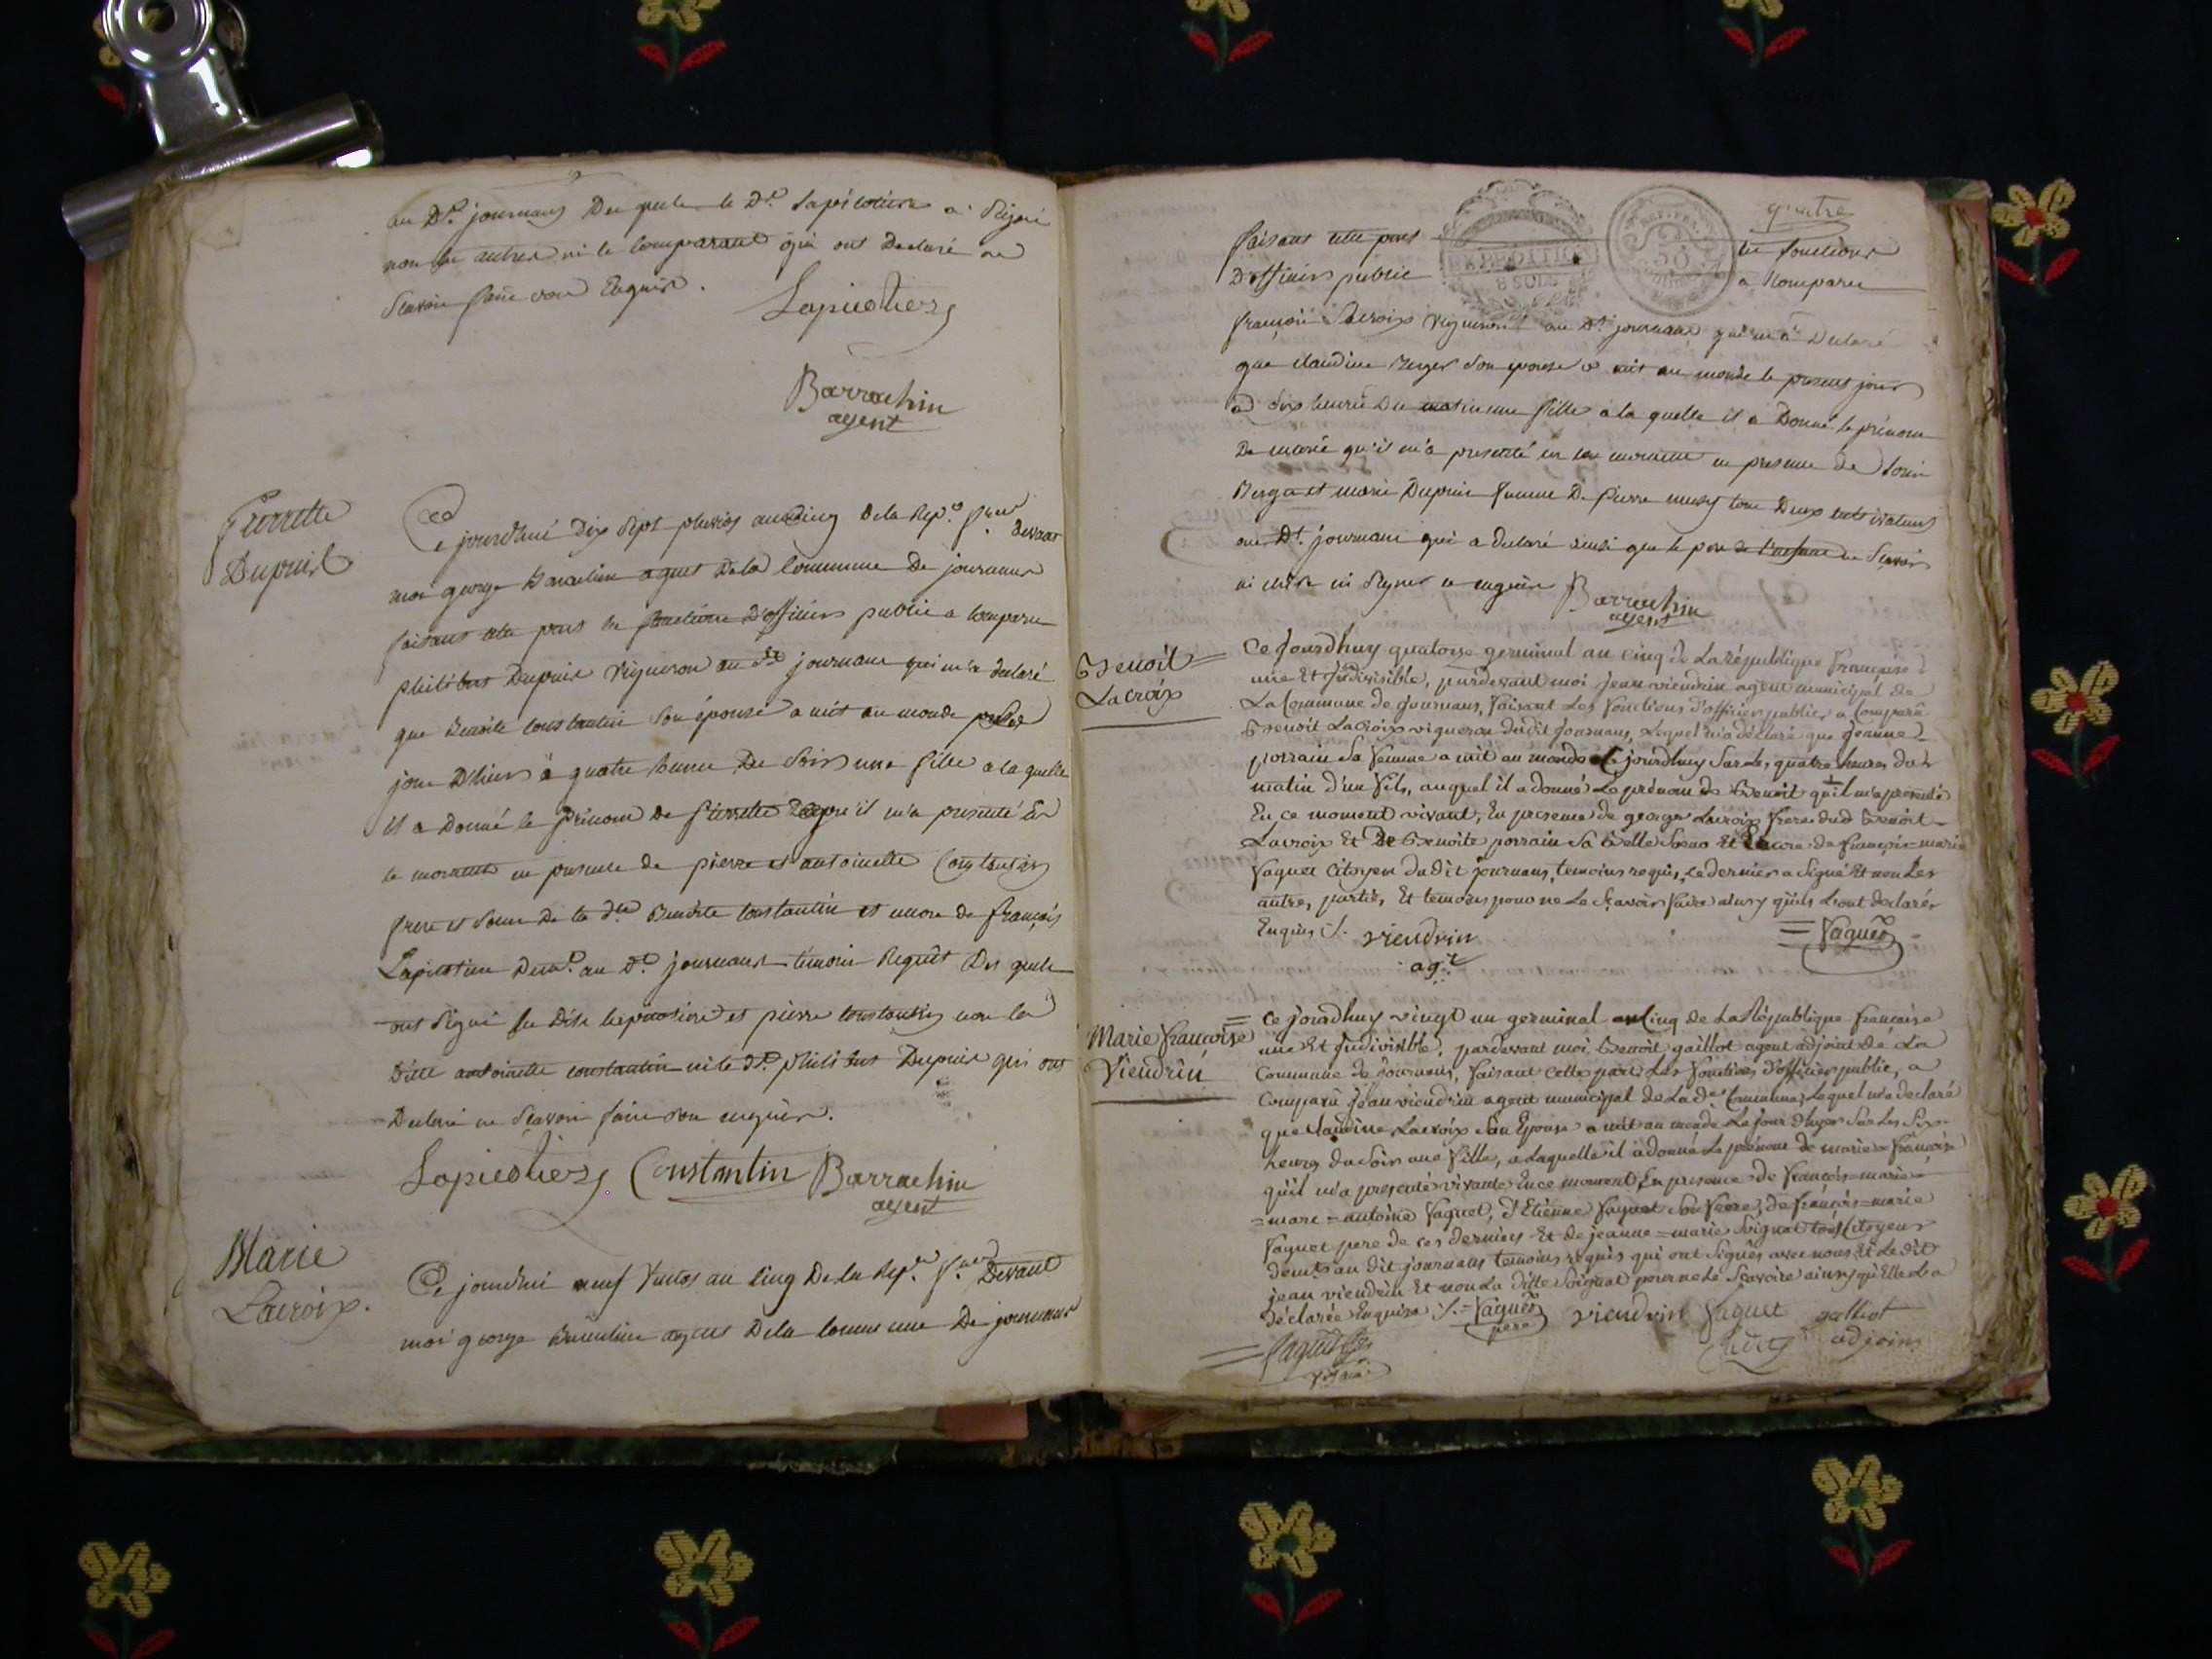 au Dt. journans Des quels le Dt. Lapierotiere a Signé
non les autres ni le Comparant qui ont Declaré ne
Scavoir faire de ce Enquis.
Lapierotiere
Barrachin
agent
Pierrette
Dupuis
Ce jourd'hui Dix Sept pluvios an Cinq De la Rep.e f.se Devant
moi george Barrachin agent De la Commune De journans
faisant cette part les fonctions D'officier public a Comparu
philibert Dupuis vigneron au dt journans qui m'a declaré
que Benoite Constantin Son épouse a mit au monde
jour D'hier à quatre heures Du Soir une fille a la quelle
il a Donné le prénom De Pierrette qu'il m'a presenté En
ce moment en presence de pierre et antoinette Constantin
frere et Soeur De la dte Benoite Constantin et encore de françois
Lapierotiere au Dt journans témoins Requis Des quels
ont Signé le Dits Lapierotiere et pierre Constantin non la
Ditte antoinette Constantin ni le dt. philibert Dupuis qui ont
Declaré ne Scavoir faire de ce enquis.
Lapierotiere Constantin Barrachin
agent
Marie
Lacroix.
Ce jourd'hui neuf Ventos an Cinq De la Rep.e f.se Devant
moi george Barrachin agent De la Commune De journans
quatre
faisant cette part les fonctions
D'officier public a Comparu
EXPEDITION
8 SOLS
françois Lacroix vigneron au Dt journans qui m'a Declaré
que Claudine Berger Son epouse a mit au monde le present jour
à Six heures Du matin une fille a la quelle il a Donné le prénom
De marie qu'il m'a presenté en ce moment en presence de
Berger et marie Dupuis femme De pierre tous Deux cultivateurs
au Dt. journans qui a declaré ainsi que le pere de l'enfant ne Scavoir
ni écrire ni Signer ce enquis Barrachin
agent
Benoit =
Lacroix
Ce Jourdhuy quatorze germinal an cinq de La République françoise
une Et Jndivisible, pardevant moi jean viendrin agent municipal de
La Commune de journans, faisant Les fonctions d'officier public, a Comparû
Benoit Lacroix vigneron dudit journans, Lequel m'a déclaré que jeanne
porrain Sa femme a mit au monde Ce jourdhuy Sur Les quatre heures du
matin d'un fils, auquel il a donné Le prénom de Benoit qu'il m'a presenté
En ce moment vivant, En presence de george Lacroix frere dud Benoit
Lacroix Et De Benoite porrain Sa Belle Soeur Et Encore de françois=marie
Vaguet Citoyen dudit journans, temoins requis, ce dernier a Signé Et non Les
autres parties, Et temoins pour ne Le Scavoir faire ainsy qu'ils L'ont declarés
Enquis ./. viendrin = Vaguet
agt
Marie françoise =
Viendrin
Ce jourdhuy vingt un germinal an Cinq de La République francoise
une Et Jndivisible, pardevant moi Benoit galllot agent adjoint de La
Commune de Journans, faisant Cette part Les fonctions d'officier public, a
Comparû jean viendrin agent municipal de La de Commune, Lequel m'a declaré
que Claudine Lacroix Son Epouse a mit au monde Le jour d'hyer Sur Les Six
heures du Soir une fille, a Laquelle il a donné Le prénom de marie = françoise
qu'il m'a presenté vivante En ce moment, En presence de françois=marie
=marc=antoine Vaguet, d'Etienne Vaguet Son frere, de françois=marie
Vaguet pere de ces derniers Et de jeanne=marie Soignat tous Citoyens
demts au dit journans temoins requis qui ont Signés avec nous Et Le dit
jean viendrin Et non La ditte Soignat pour ne Le Scavoire ainsy qu'Elle L'a
déclarée Enquise ./. = Vaguet viendrin Vaguet galllot
pere adjoint
= Vaguet